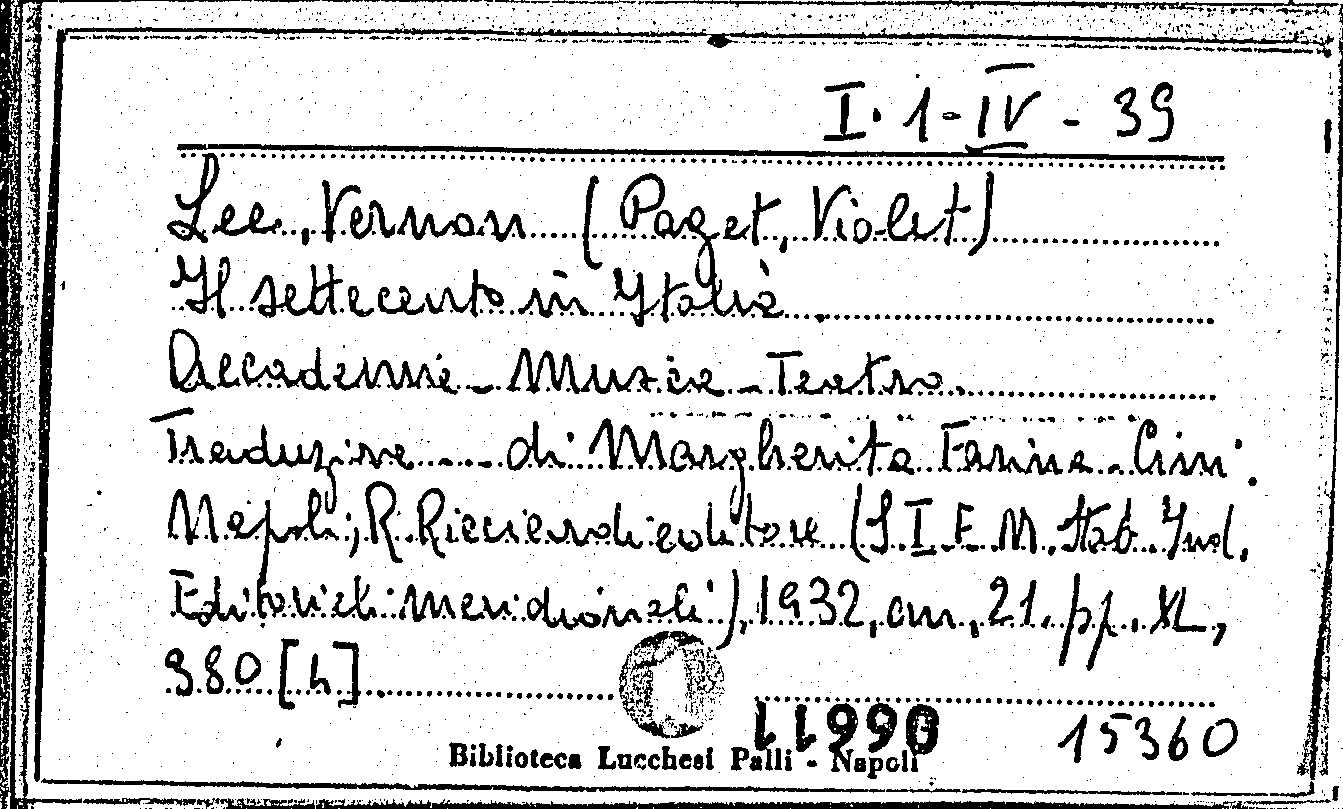 I. 1 - IV - 39
Lee, Vernon (Paget, Violet)
Il settecento in Italia.
Accademie - Musica - Teatro.
Traduzine .... di Margherita Farina - Cini.
Napoli, R. Ricciardi editore (S. I. E. M. Stab. Ind.
Editoriali meridionali), 1932, cm, 21. pp. XL,
380 [4]
11990 15360
Biblioteca Lucchesi Palli - Napoli